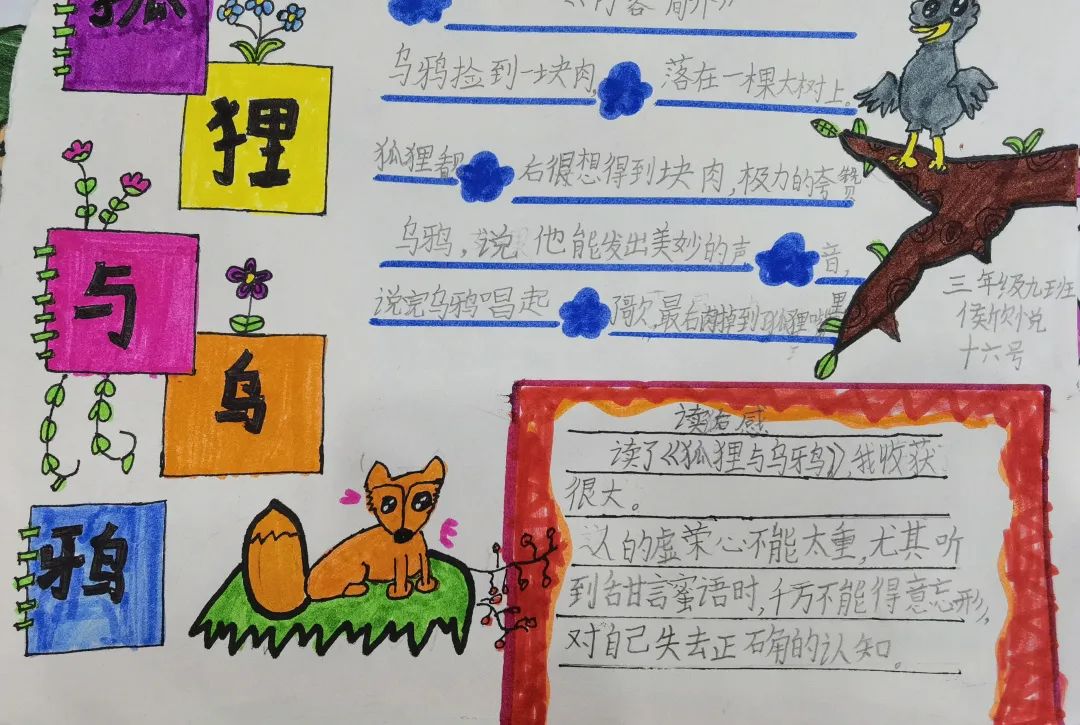 狐
狸
与
乌
鸦
《内容简介》
乌鸦捡到一块肉，落在一棵大树上。
狐狸看见后很想得到块肉，极力的夸赞
乌鸦，说他能发出美妙的声音，
说完乌鸦唱起了歌，最后肉掉到了狐狸嘴里
三年级九班
侯欣悦
十六号
读后感
读了《狐狸与乌鸦》，我收获
很大。
人的虚荣心不能太重，尤其听
到甜言蜜语时，千万不能得意忘形，
对自己失去正确的认知。